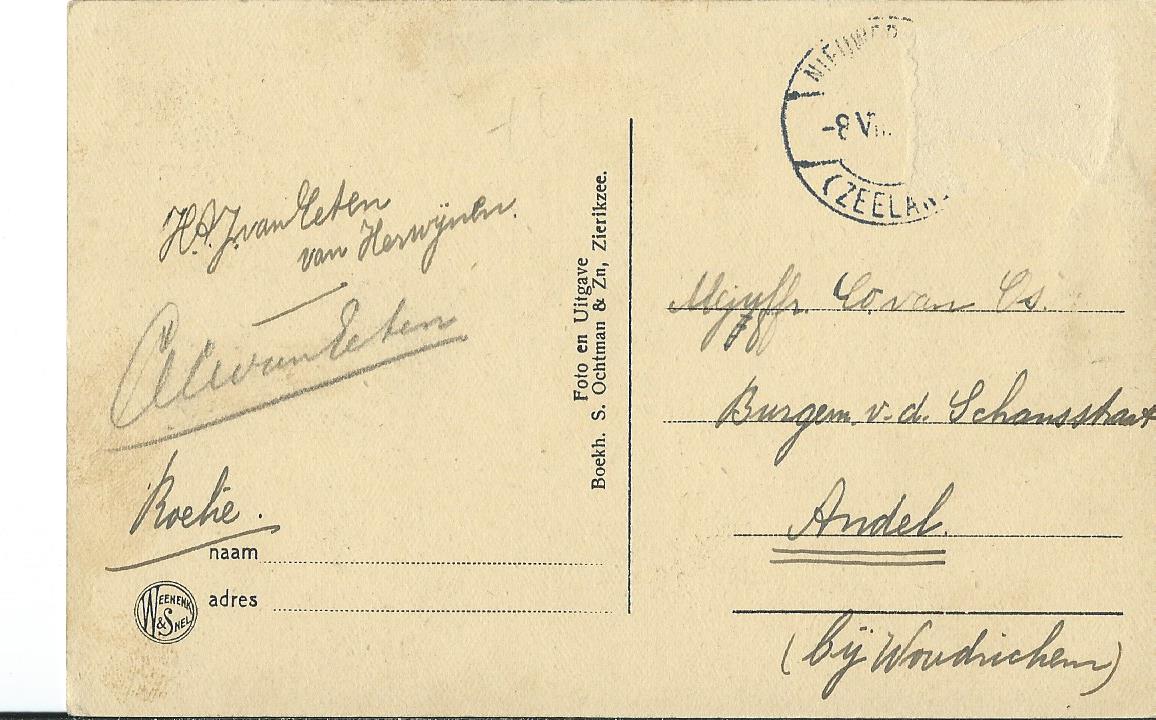 H.A.J. van Eeten
van Herwijnen.
van Eeten
Roelie.
naam
adres
WEENENK & SNEL
Foto en Uitgave
Boekh. S. Ochtman & Zn, Zierikzee.
NIEUWER
-8 VII
(ZEELAN
Mejuffr. Co. van Es.
Burgem. v.d. Schansstraat
Andel.
(bij Woudrichem)